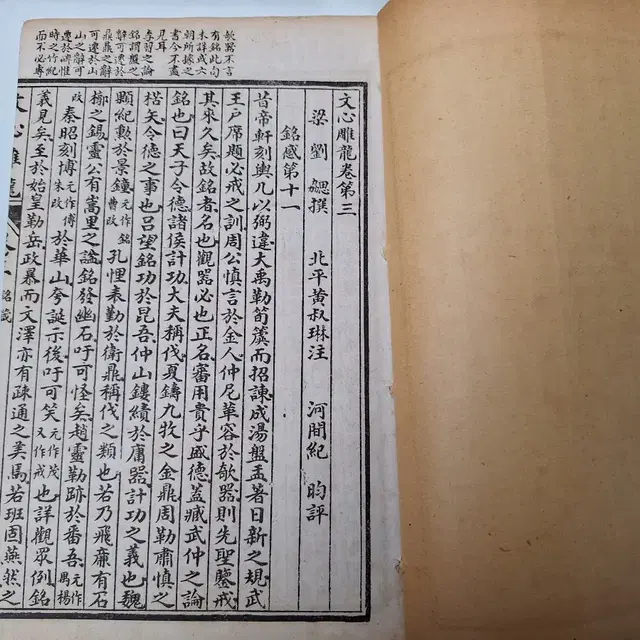 欹器不言
有銘此句
未詳或六
朝所據之
書今不盡
見耳
李習之論
銘謂盤之
辭可遷於
鼎鼎之辭
可遷於山
山之辭可
遷於碑惟
時之所紀
而不必專
文心雕龍卷第三
梁 劉 勰撰 北平黃叔琳注 河間紀 昀評
銘箴第十一
昔帝軒刻輿几以弼違大禹勒筍簴而招諫成湯盤盂著日新之規武
王戶席題必戒之訓周公慎言於金人仲尼革容於欹器則先聖鑒戒
其來久矣故銘者名也觀器必也正名審用貴乎盛德蓋臧武仲之論
銘也曰天子令德諸侯計功大夫稱伐夏鑄九牧之金鼎周勒肅慎之
楛矢令德之事也呂望銘功於昆吾仲山鏤績於庸器計功之義也魏
顆紀勲於景鐘元作銘曹改孔悝表勤於衛鼎稱伐之類也若乃飛廉有石
槨之錫靈公有蒿里之謚銘發幽石吁可怪矣趙靈勒跡於番吾元作禺楊
改秦昭刻博元作傅朱改於華山夸誕示後吁可笑元作茂又作戒也詳觀眾例銘
義見矣至於始皇勒岳政暴而文澤亦有疎通之美焉若班固燕然之
文心雕龍
銘箴